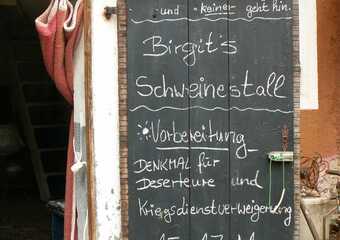 und keiner geht hin.
Birgit's
Schweinestall
Vorbereitung
DENKMAL für
Deserteure und
Kriegsdienstverweigerung